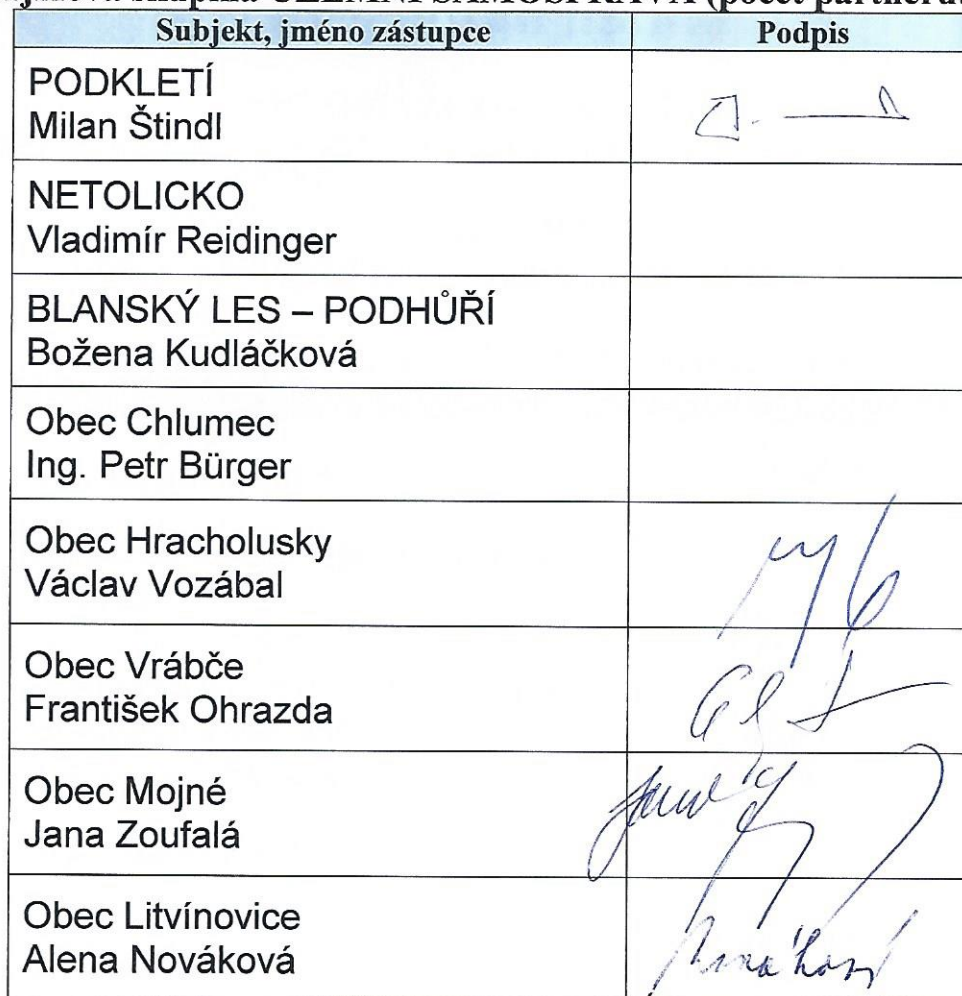 ÚZEMNÍ SAMOSPRÁVA (počet partnerů
Subjekt, jméno zástupce Podpis
PODKLETÍ
Milan Štindl
NETOLICKO
Vladimír Reidinger
BLANSKÝ LES – PODHŮŘÍ
Božena Kudláčková
Obec Chlumec
Ing. Petr Bürger
Obec Hracholusky
Václav Vozábal
Obec Vrábče
František Ohrazda
Obec Mojné
Jana Zoufalá
Obec Litvínovice
Alena Nováková